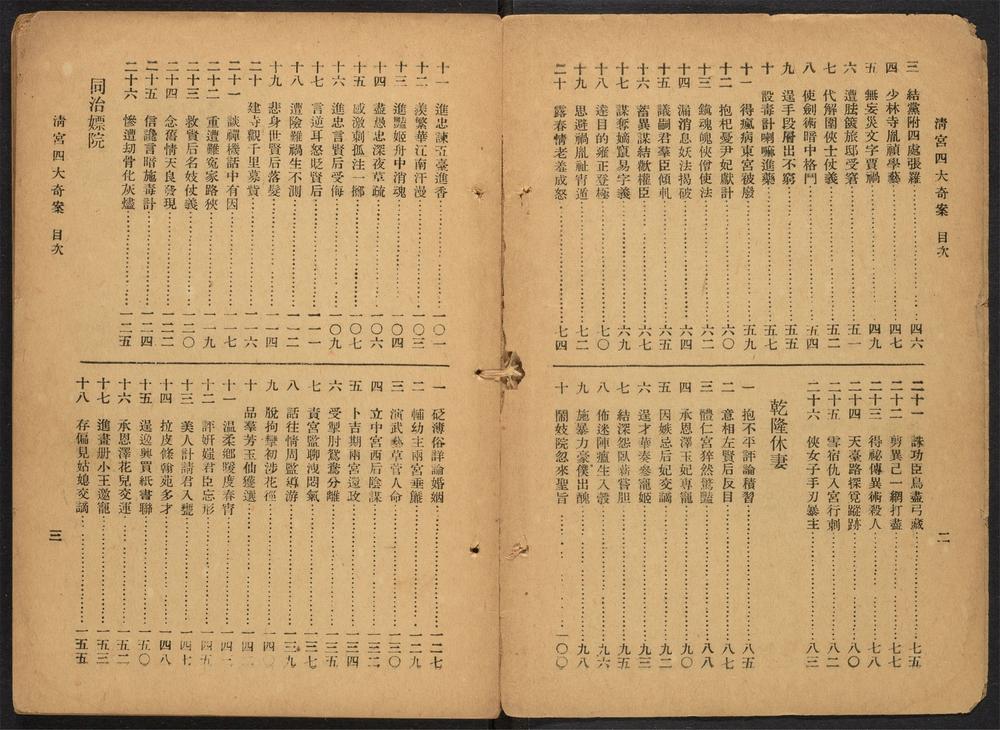 清宮四大奇案　目次
二
三　結黨附四處張羅…四六
四　少林寺胤禎學藝…四七
五　無妄災文字賈禍…四九
六　遭胠篋旅邸受窘…五一
七　代解圍俠士仗義…五二
八　使劍術暗中格鬥…五四
九　逞手段層出不窮…五五
十　設毒計喇嘛進藥…五七
十一　得瘋病東宮被廢…五九
十二　抱杞憂尹妃獻計…六〇
十三　鎮魂魄俠僧使法…六二
十四　漏消息妖法揭破…六四
十五　議嗣君羣臣傾軋…六五
十六　蓄異謀結歡權臣…六六
十七　謀奪嫡竄易字義…六九
十八　達目的雍正登極…七〇
十九　思避禍胤祉宵遁…七二
二十　露春情老羞成怒…七四
二十一　誅功臣鳥盡弓藏…七五
二十二　剪異己一網打盡…七七
二十三　得祕傳異術殺人…七八
二十四　天臺路探覓蹤跡…八〇
二十五　雪宿仇入宮行刺…八二
二十六　俠女子手刃暴主…八三
乾隆休妻
一　抱不平評論積習…八五
二　意相左賢后反目…八七
三　體仁宮猝然驚豔…八八
四　承恩澤玉妃專寵…九〇
五　因嫉忌后妃交謫…九二
六　逞才華奏參寵姬…九三
七　結深怨臥薪嘗膽…九五
八　佈迷陣瘟生入彀…九六
九　施暴力豪僕出醜…九八
十　鬧妓院忽來聖旨…一〇〇
十一　進忠諫五臺進香…一〇一
十二　羨繁華江南汗漫…一〇三
十三　進豔姬舟中消魂…一〇四
十四　盡愚忠深夜草疏…一〇六
十五　感激刺孤注一擲…一〇七
十六　進忠言賢后受侮…一〇九
十七　言逆耳怒貶賢后…一一一
十八　遭險難禍生不測…一一二
十九　悲身世賢后落髮…一一四
二十　建寺觀千里募貲…一一六
二十一　談禪機話中有因…一一七
二十二　重遭難冤家路狹…一一九
二十三　救賢后名妓仗義…一二〇
二十四　念舊情天良發現…一二二
二十五　信讒言暗施毒計…一二四
二十六　慘遭刧骨化灰燼…一二五
同治嫖院
一　砭薄俗詳論婚姻…一二七
二　輔幼主兩宮垂簾…一二九
三　演武藝草菅人命…一三〇
四　立中宮西后陰謀…一三二
五　卜吉期兩宮還政…一三四
六　受掣肘鴛鴦分離…一三五
七　責宮監聊洩悶氣…一三七
八　話往情周監導游…一三九
九　脫拘攣初涉花徑…一四〇
十　品羣芳玉仙獲選…一四二
十一　溫柔鄉暖度春宵…一四四
十二　評妍媸君臣忘形…一四五
十三　美人計請君入甕…一四七
十四　拉皮條翰苑多才…一四八
十五　逞逸興買紙書聯…一五〇
十六　承恩澤花兒交運…一五二
十七　進畫册小王邀寵…一五三
十八　存偏見姑媳交謫…一五五
清宮四大奇案　目次
三